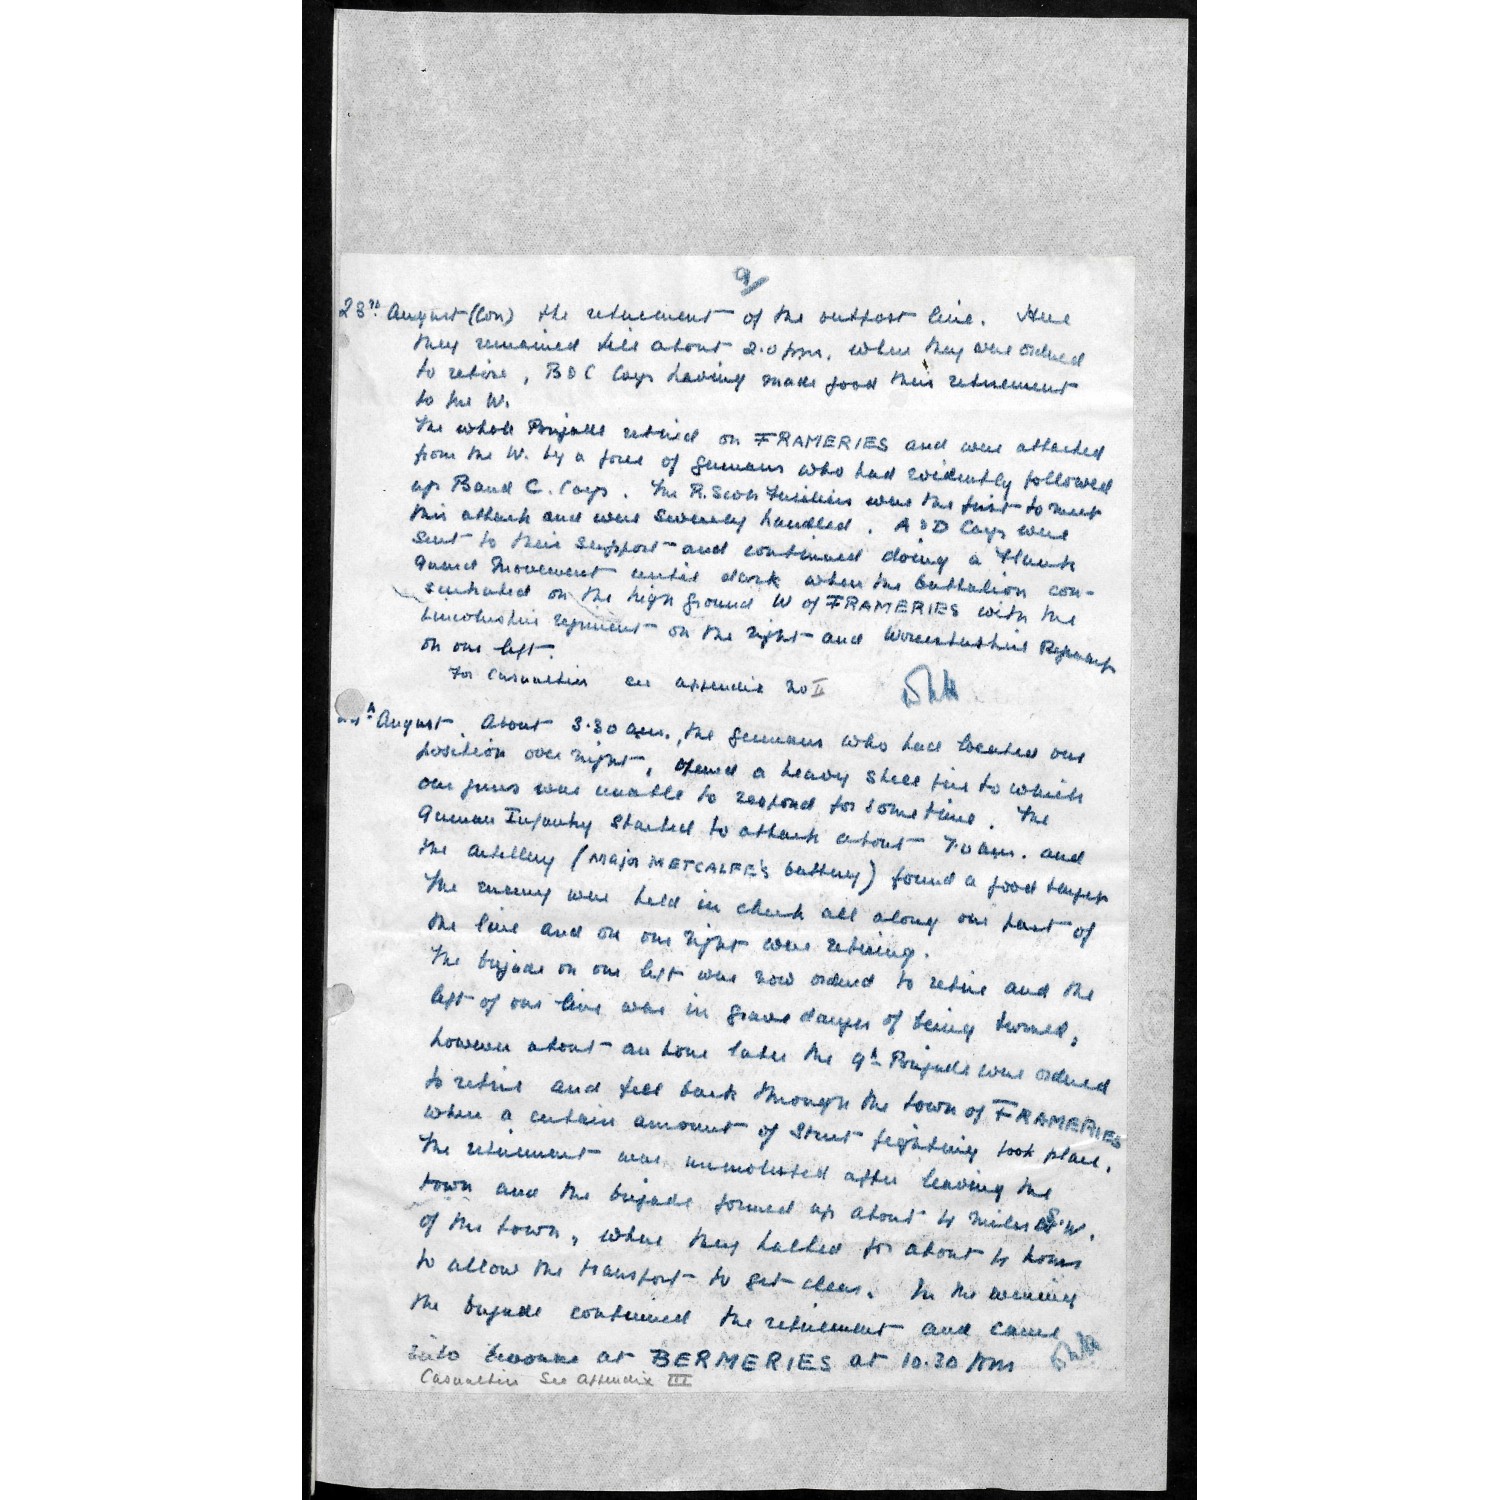 9/
23rd August (Con) the retirement of the outpost line. Here
they remained till about 2.0 pm. when they were ordered
to retire, B & C Coys having made good their retirement
to the W.
The whole Brigade retired on FRAMERIES and were attacked
from the W. by a force of Germans who had evidently followed
up B and C. Coys. The R. Scots Fusiliers were the first to meet
this attack and were severely handled. A & D Coys were
sent to their support and continued doing a flank
guard movement until dark when the battalion con-
centrated on the high ground W of FRAMERIES with the
Lincolnshire regiment on the right and Worcestershire Regiment
on our left.
For Casualties see appendix No II
24th August About 3.30 am., the Germans who had located our
position over night, opened a heavy shell fire to which
our guns was unable to respond for some time. The
German Infantry started to attack about 7.0 am. and
the artillery (Major METCALFE'S battery) found a good target
The enemy were held in check all along our part of
the line and on our right were retiring.
The brigade on our left was now ordered to retire and the
left of our line was in grave danger of being turned,
however about an hour later the 9th Brigade were ordered
to retire and fell back through the town of FRAMERIES
when a certain amount of street fighting took place.
The retirement was unmolested after leaving the
town and the brigade formed up about 4 miles S.W.
of the town, where they halted for about 4 hours
to allow the transport to get clear. In the evening
the brigade continued the retirement and came
into bivouac at BERMERIES at 10.30 pm
Casualties See Appendix III